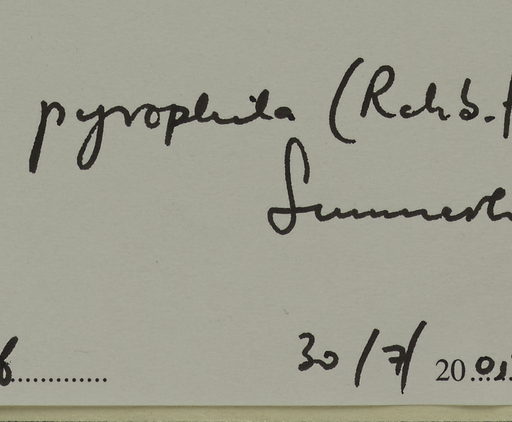 pyrophila (Rchb.f
Summerh
30/7/ 20 01